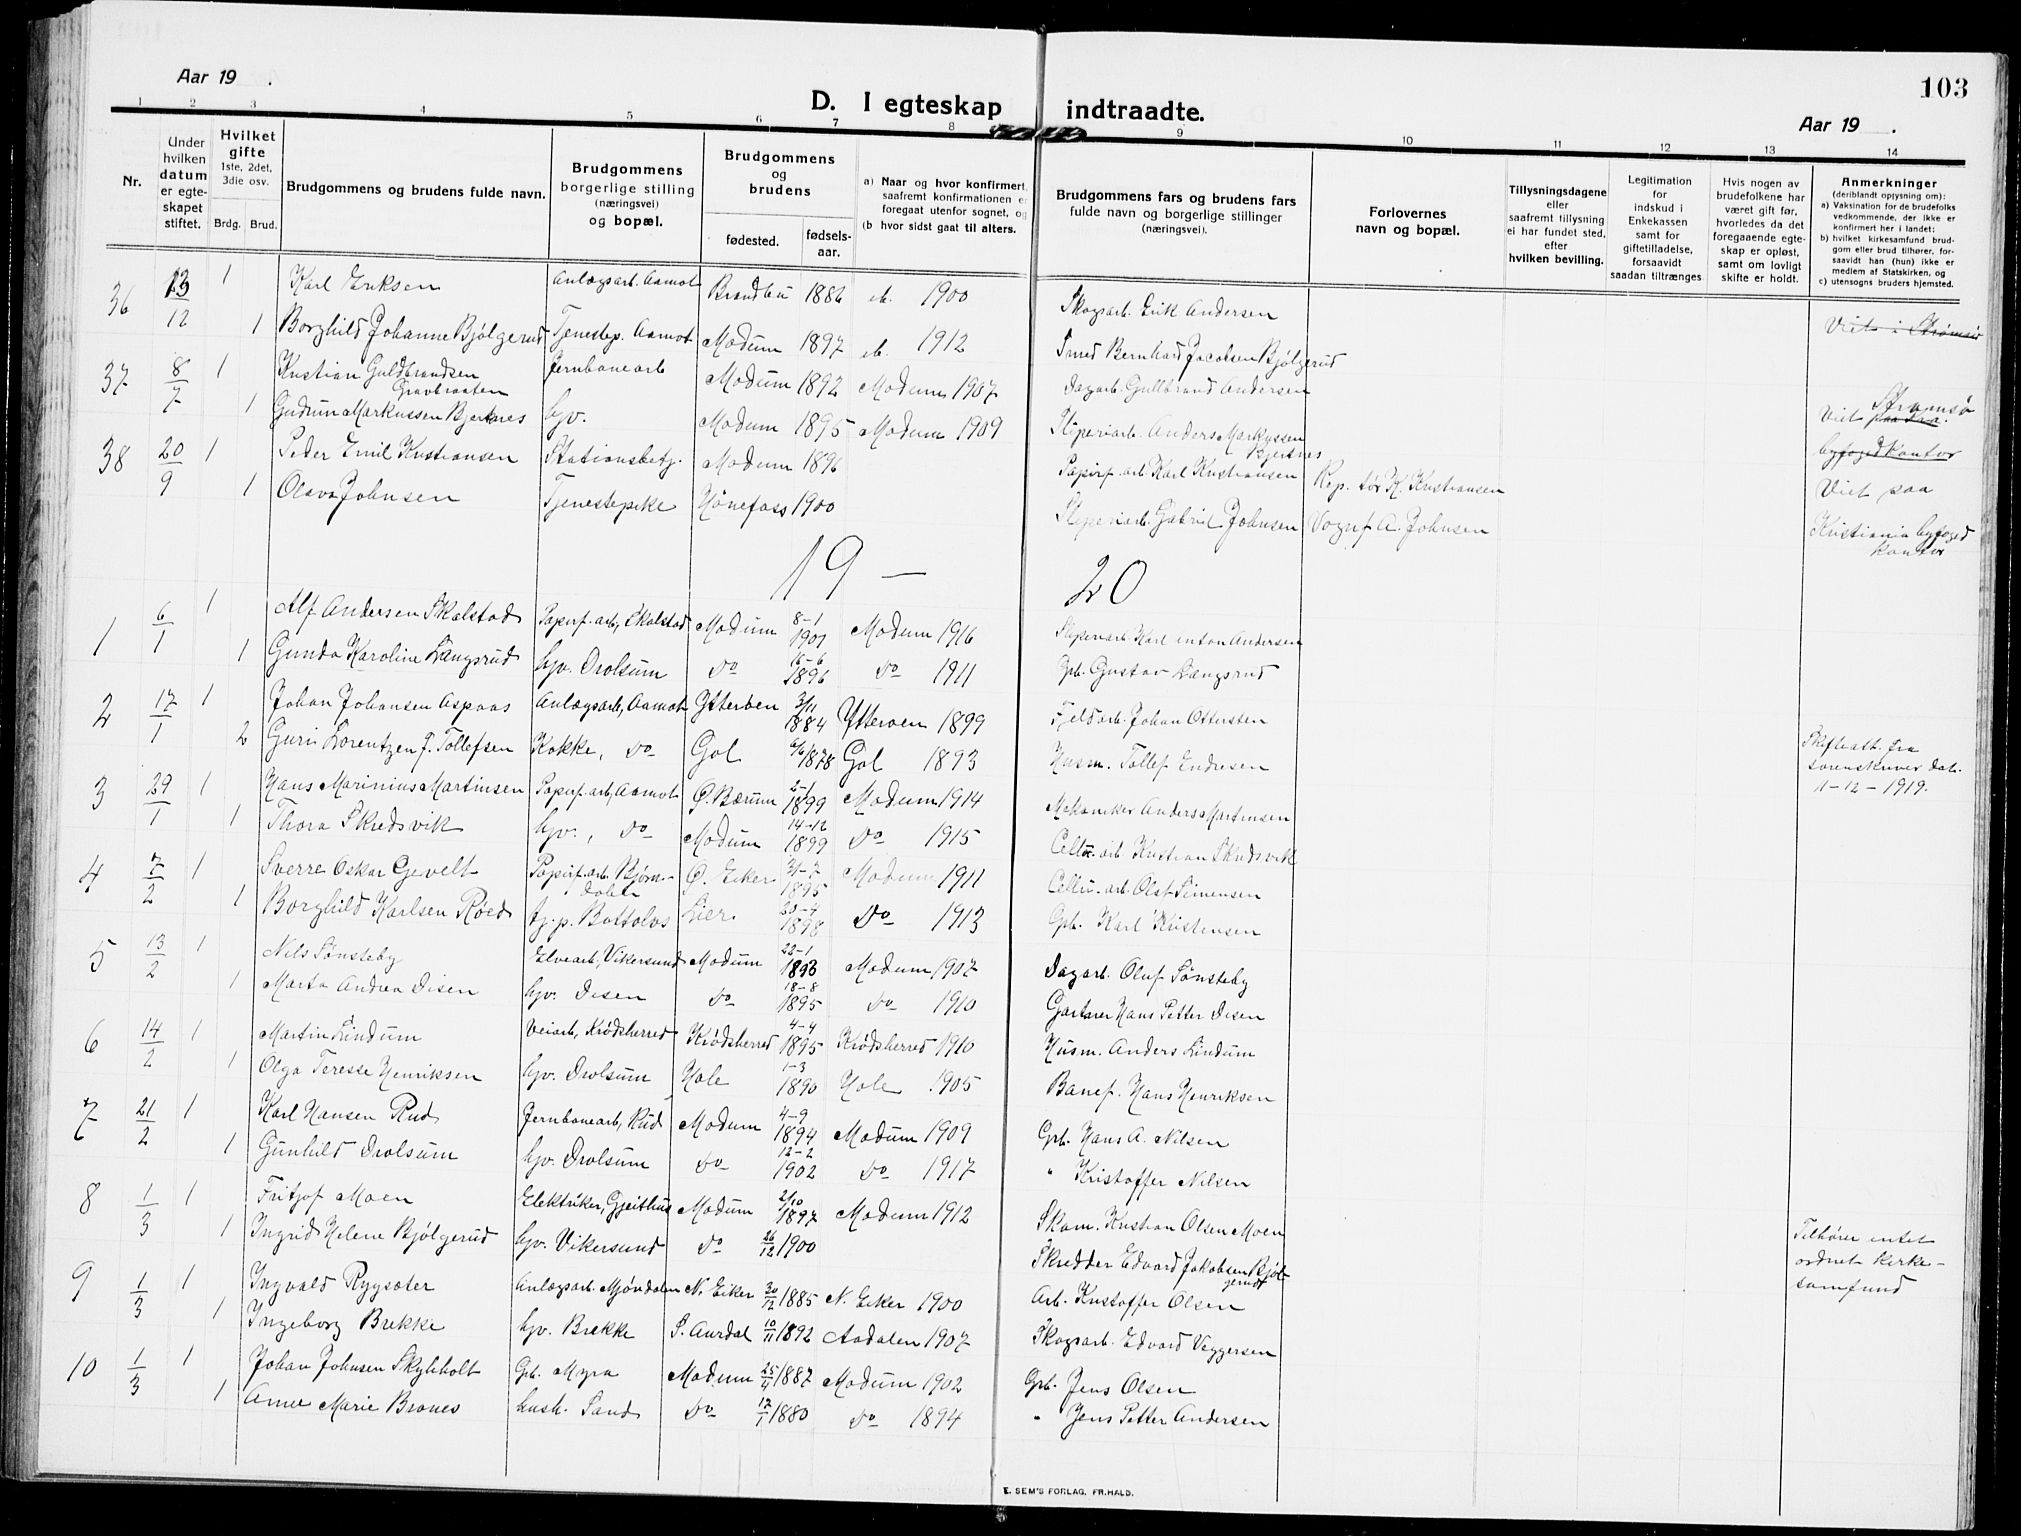 Aar 19 .
D. I egteskap indtraadte.
103
Aar 19 .
1 2 3 4 5 6 7 8 9 10 11 12 13 14
Nr.
Under hvilken datum er egteskapet stiftet.
Hvilket gifte 1ste, 2det, 3die osv.
Brdg. Brud.
Brudgommens og brudens fulde navn.
Brudgommens borgerlige stilling (næringsvei) og bopæl.
Brudgommens og brudens
fødested.
fødsels-aar.
a) Naar og hvor konfirmert, saafremt konfirmationen er foregaat utenfor sognet, og
(b hvor sidst gaat til alters.
Brudgommens fars og brudens fars fulde navn og borgerlige stillinger (næringsvei).
Forlovernes navn og bopæl.
Tillysningsdagene eller saafremt tillysning ei har fundet sted, efter hvilken bevilling.
Legitimation for indskud i Enkekassen samt for giftetilladelse, forsaavidt saadan tiltrænges
Hvis nogen av brudefolkene har været gift før, hvorledes da det foregaaende egteskap er opløst, samt om lovligt skifte er holdt.
Anmerkninger (deriblandt opjysning om):
a) Vaksination for de brudefolks Vedkommende, der ikke er konfirmert her i landet;
b) hvilket kirkesamfund brudgom eller brud tilhører, forsaavidt han (hun) ikke er medlem af Statskirken, og
c) utensogns bruders hjemsted.
36 13/12 1 Karl Eriksen Anlægsarb. Aamot Brandbu 1886 1900 Skogsarb. Erik Andersen
1 Borghild Johanne Bjølgerud Tjenestep. Aamot Modum 1897 1912 Smed Bernhard Jacobsen Bjølgerud Viet i Strømsø
37 8/7 1 Kristian Guldbrandsen Gravbraaten Jernbanearb Modum 1892 Modum 1907 Dagarb. Gullbrand Andersen
1 Gudrun Markussen Bjertnes hjv. Modum 1895 Modum 1909 Sliperiarb. Anders Markussen Bjertnes Viet Strømsø
38 20/9 1 Peder Emil Kristiansen Stationsbetj. Modum 1896 Papirf. arb. Karl Kristiansen Rep. tør K. Kristiansen byfogedkontor
1 Olava Johnsen Tjenestepike Hønefoss 1900 Sliperiarb. Gabriel Johnsen Vognf A. Johnsen Viet paa
Kristiania byfoged kontor
19 — 20
1 6/1 1 Alf Andersen Skalstad Papirf. arb, Skalstad Modum 8-1 1901 Modum 1916 Sliperiarb. Karl Anton Andersen
1 Gunda Karoline Langsrud hjv. Drolsum Do 16-6 1896 Do 1911 Grb. Gustav Langsrud
2 17/1 1 Johan Johansen Aspaas Anlægsarb, Aamot Ytterøen 3/11 1884 Ytterøen 1899 Fjeldarb. Johan Ottersten
2 Guri Lorentzen f. Tollefsen Kokke, Do Gol 6/6 1878 Gol 1893 Husm. Tollef Endresen Skifteatt. fra sorenskriver dat. 11-12-1919.
3 29/1 1 Hans Marinius Martinsen Papirf. arb, Aamot Ø. Bærum 2-1 1899 Modum 1914 Mekaniker Anders Martinsen
1 Thora Skredsvik hjv., Do Modum 14-12 1899 Do 1915 Cellu. arb. Kristian Skredsvik
4 7/2 1 Sverre Oskar Gevelt Papirf. arb. Bjørndalen Ø. Eiker 31-7 1895 Modum 1911 Cellu. arb. Olaf Simensen
1 Borghild Karlsen Røed tj. p. Bottolvs Lier 20-4 1898 Do 1913 Grb. Karl Kristensen
5 13/2 1 Nils Sønsteby Elvearb, Vikersund Modum 22-1 1893 Modum 1907 Dagarb. Oluf Sønsteby
1 Marta Andrea Disen hjv. Disen Do 18-8 1895 Do 1910 Gartner Hans Petter Disen
6 14/2 1 Martin Lindum Veiarb, Krødsherred Krødsherred 4-4 1895 Krødsherred 1910 Husm. Anders Lindum
1 Olga Terese Henriksen hjv. Drolsum Hole 1-3 1890 Hole 1905 Banef. Hans Henriksen
7 21/2 1 Karl Hansen Rud Jernbanearb, Rud Modum 4-9 1894 Modum 1909 Grb. Hans A. Nilsen
1 Gunhild Drolsum hjv. Drolsum Do 12-2 1902 Do 1917 " Kristoffer Nilsen
8 1/3 1 Fritjof Moen Elektriker, Gjeithus Modum 2/10 1897 Modum 1912 Skom. Kristian Olsen Moen
1 Ingrid Helene Bjølgerud hjv. Vikersund Do 26/12 1900 Skredder Edvard Jakobsen Bjølgerud Tilhører intet ordnet kirkesamfund
9 1/3 1 Ingvald Rygsæter Anlægsarb. Mjøndalen N. Eiker 30/12 1885 N. Eiker 1900 Arb. Kristoffer Olsen
1 Ingeborg Brekke hjv. Brekke S. Aurdal 10/11 1892 Aadalen 1907 Skogsarb. Edvard Viggersen
10 1/3 1 Johan Johnsen Skyliholt Grb. Myra Modum 25/4 1887 Modum 1902 Grb. Jens Olsen
1 Anne Marie Braaes hush. Sand Do 17/1 1880 Do 1894 " Jens Petter Andersen
E. SEM'S FORLAG. FR.HALD.